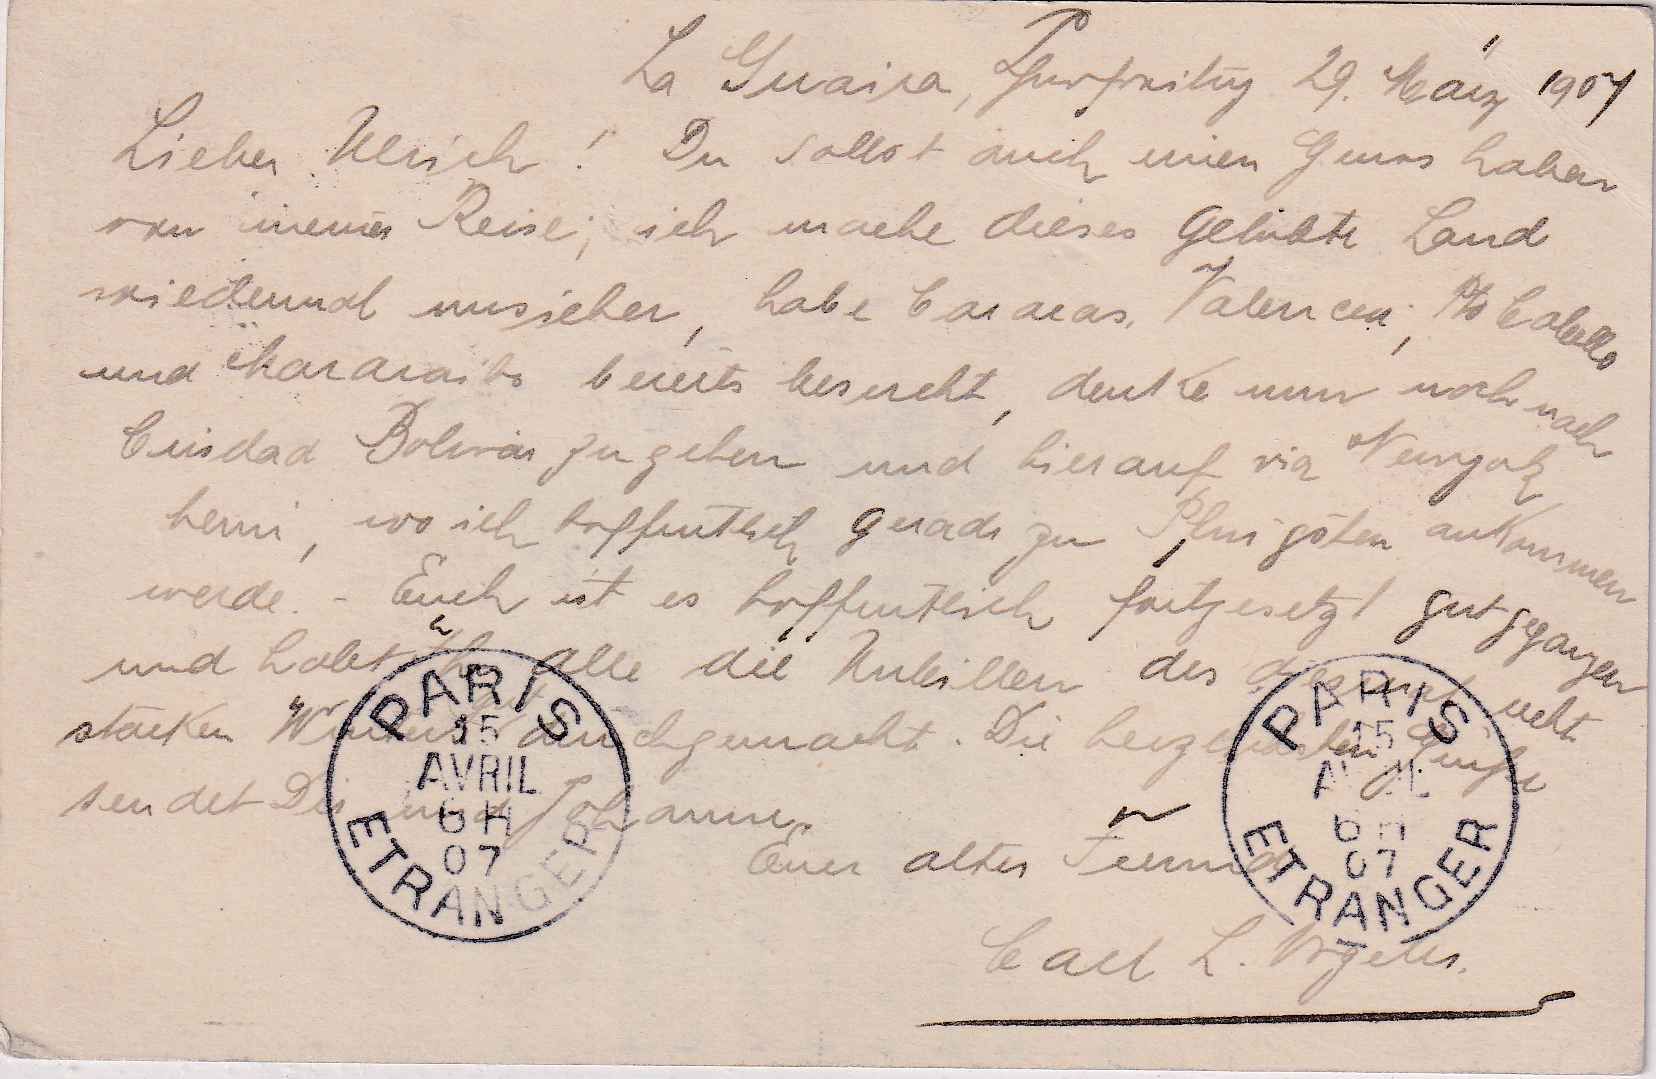 La Guaira, Charfreitag 29. März 1907
Lieber Ulrich! Du sollst auch einen Gruss haben
von meiner Reise; ich mache dieses gelobte Land
wiedermal unsicher, habe Caracas, Valencia, Pto Cabello
und Maracaibo bereits besucht, denke nun noch nach
Ciudad Bolivar zu gehen und hierauf via Newyork
heim, wo ich hoffentlich gerade zu Pfingsten ankommen
werde. - Euch ist es hoffentlich fortgesetzt gut gegangen
und habt Ihr alle die Unbillen des recht
starken Winters durchgemacht. Die herzlichsten Grüsse
sendet Dir und Johann,
Euer alter Freund
Carl L.
PARIS
15
AVRIL
6 H
07
ETRANGER
PARIS
15
AVRIL
6 H
07
ETRANGER